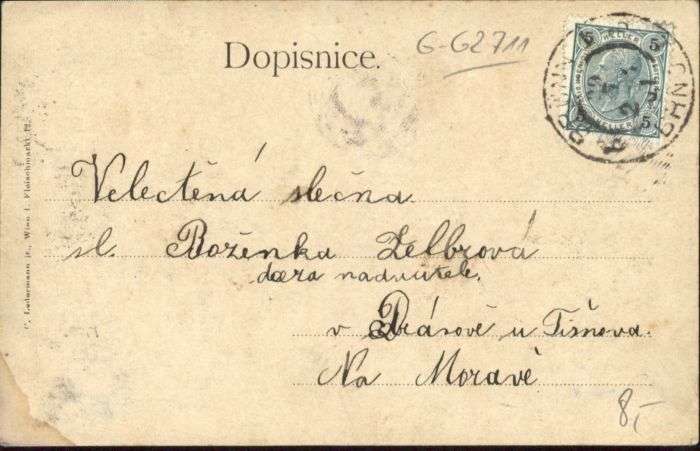 Dopisnice.
G-G2711
5 HELLER 5
Velectěná slečna
sl. Boženka Zelbrová
dcera nadučitele,
v Drásově u Tišnova.
Na Moravě
8,-
C. Ledermann jr., Wien I. Fleischmarkt 12.